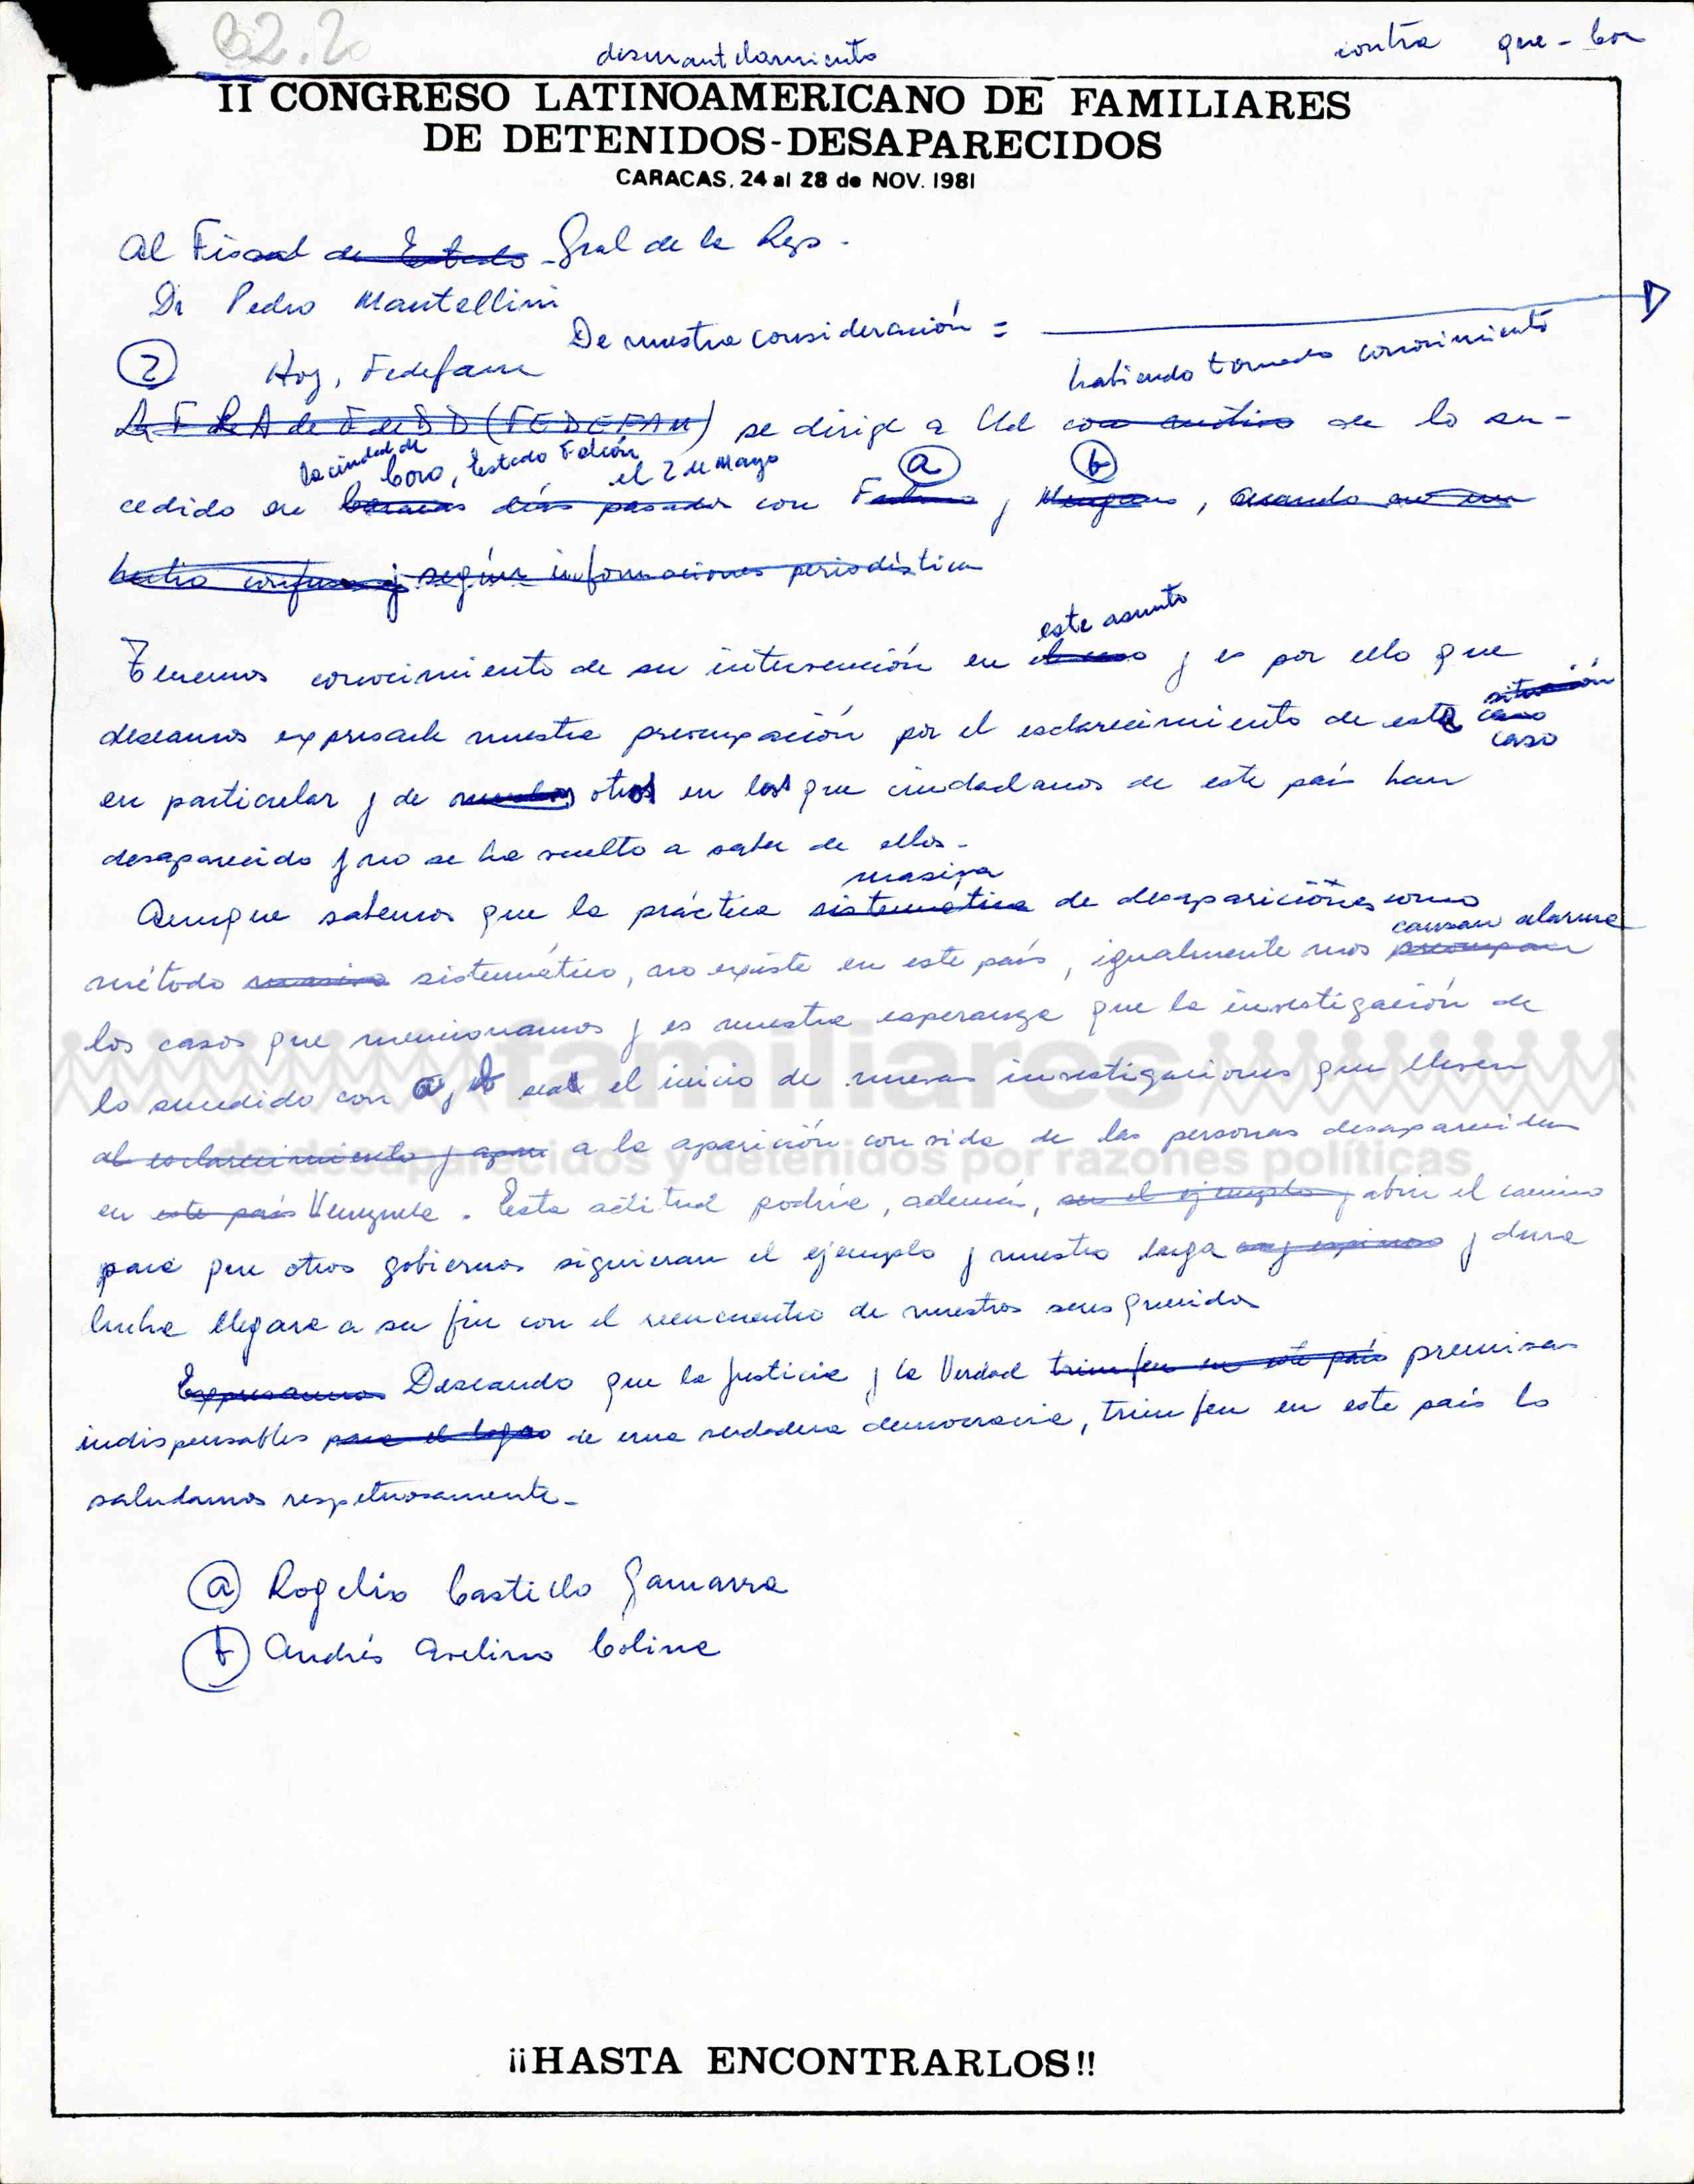 62.2
desmantelamiento
contra que - bon
II CONGRESO LATINOAMERICANO DE FAMILIARES
DE DETENIDOS-DESAPARECIDOS
CARACAS, 24 al 28 de NOV. 1981
Al Fiscal de Estado Gral de la Rep.
Dr Pedro Mantellini
De nuestra consideración =
habiendo tomado conocimiento
2 Hoy, Fedefam
La F L A de F de D D (FEDEFAM) se dirige a Ud con motivo de lo su-
la ciudad de Coro, Estado Falcón el 2 de Mayo a b
cedido en Caracas días pasados con Fulano y Mengano, cuando en un
hecho confuso y según informaciones periodística
este asunto
Tenemos conocimiento de su intervención en el caso y es por ello que
situación
deseamos expresarle nuestra preocupación por el esclarecimiento de este caso
caso
en particular y de muchos otros en los que ciudadanos de este país han
desaparecido y no se ha vuelto a saber de ellos.
masiva
Aunque sabemos que la práctica sistemática de desapariciones como
causan alarma
método masivo sistemático, no existe en este país, igualmente nos preocupan
los casos que mencionamos y es nuestra esperanza que la investigación de
familiares
lo sucedido con a y b sea el inicio de nuevas investigaciones que lleven
al esclarecimiento y apari a la aparición con vida de las personas desaparecidas
de desaparecidos y detenidos por razones políticas
en este país Venezuela. Esta actitud podría, además, ser el ejemplo y abrir el camino
para que otros gobiernos siguieran el ejemplo y nuestra larga y dura
lucha llegara a su fin con el reencuentro de nuestros seres queridos
Expresamos Deseando que la Justicia y la Verdad triunfen en este país premisas
indispensables para el logro de una verdadera democracia, triunfen en este país lo
saludamos respetuosamente.
a Rogelio Castillo Gamarra
b Andrés Avelino Colina
¡¡HASTA ENCONTRARLOS!!